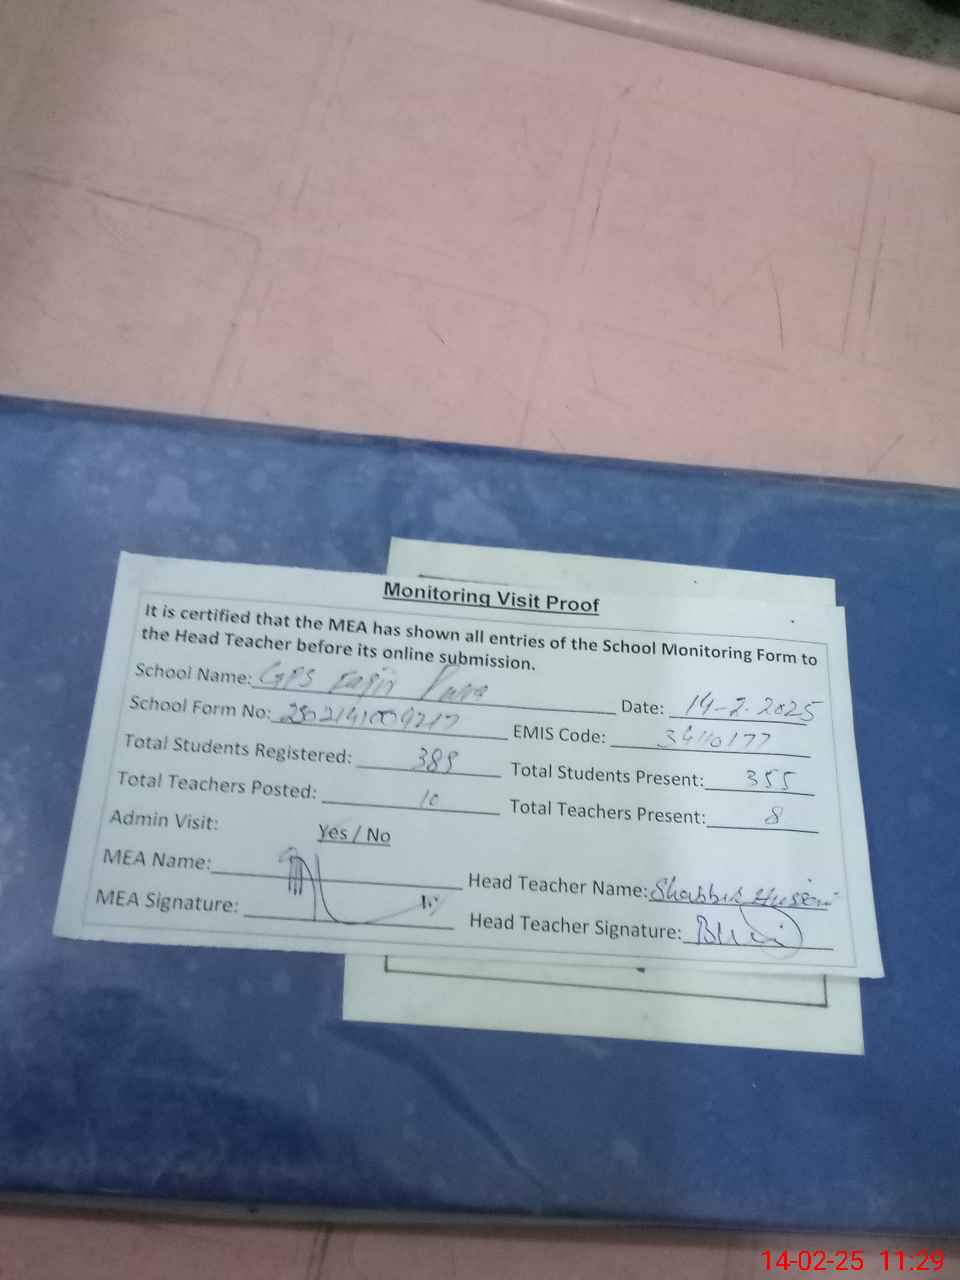 Monitoring Visit Proof
It is certified that the MEA has shown all entries of the School Monitoring Form to
the Head Teacher before its online submission.
School Name: GPS
Date: 14-2-2025
School Form No:
EMIS Code: 34110177
Total Students Registered: 389
Total Students Present: 355
Total Teachers Posted: 10
Total Teachers Present: 8
Admin Visit: Yes / No
MEA Name:
Head Teacher Name: Shabbir Hussain
MEA Signature:
Head Teacher Signature:
14-02-25 11:29